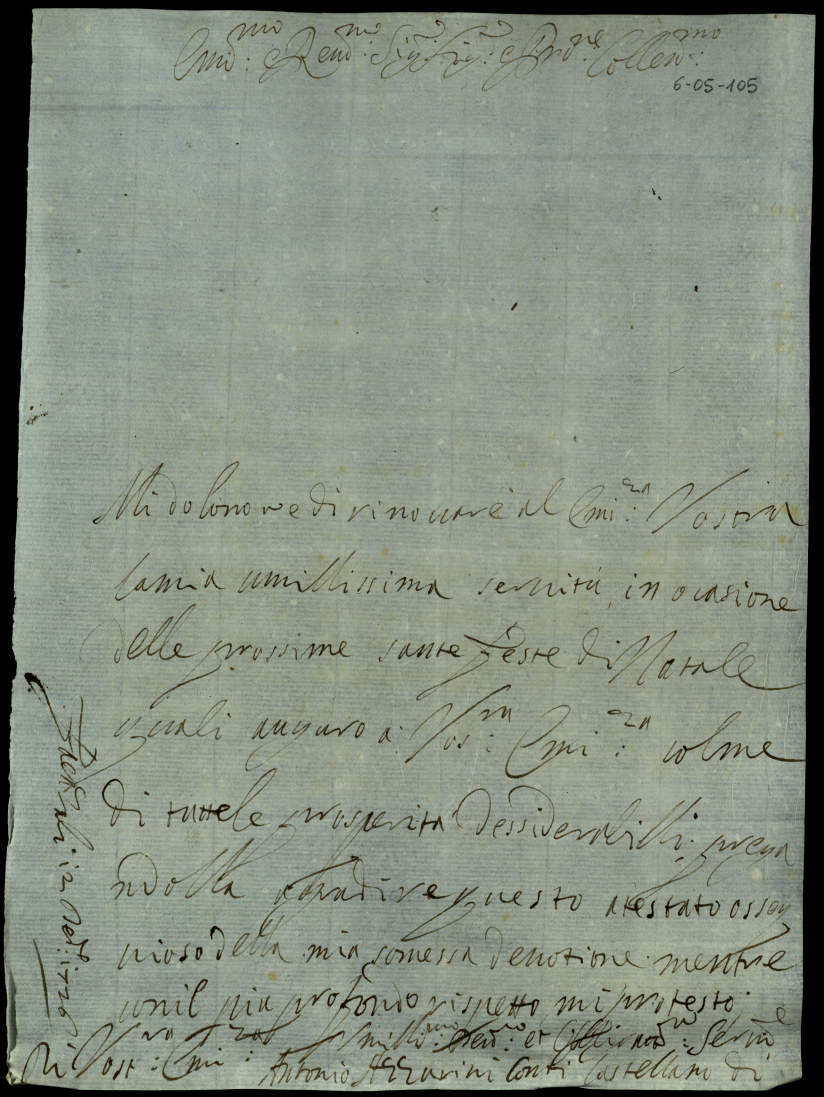 Em̅o: e Reu̅mo: Sig:r Sig:r e Prone: Collendmo:
6-05-105
Mi do lonore di rinouare al Emi:za Vostra
la mia umillissima seruitù, in ocasione
delle prossime sante feste di Natale
quali auguro a Vos:ra Emi:za colme
di tutte le prosperita dessiderabilli, prega
ndolla agradire questo atestato osseq
uioso della mia somessa deuotione mentre
con il più profondo rispetto mi protesto
Di Vost:ra Emi:za
Umillmo: et
Antonio Azzarini Conti Castellano di